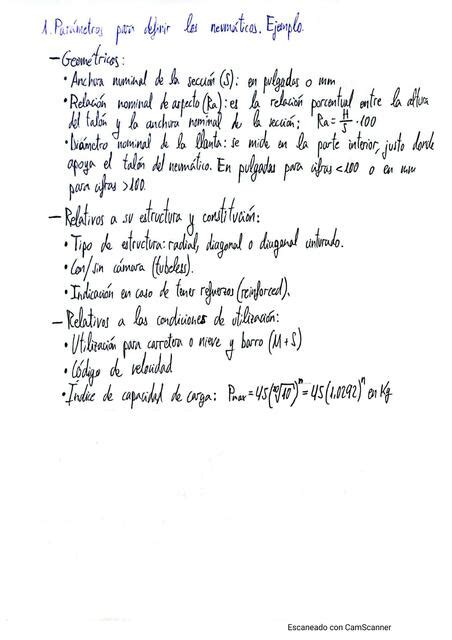 1. Parámetros para definir los neumáticos. Ejemplo.
– Geométricos:
• Anchura nominal de la sección (S): en pulgadas o mm
• Relación nominal de aspecto (Ra): es la relación porcentual entre la altura
del talón y la anchura nominal de la sección; Ra = H/S · 100
• Diámetro nominal de la llanta: se mide en la parte interior, justo donde
apoya el talón del neumático. En pulgadas para cifras < 100 o en mm
para cifras > 100.
– Relativos a su estructura y constitución:
• Tipo de estructura: radial, diagonal o diagonal cinturado.
• Con/sin cámara (tubeless).
• Indicación en caso de tener refuerzos (reinforced).
– Relativos a las condiciones de utilización:
• Utilización para carretera o nieve y barro (M+S)
• Código de velocidad
• Índice de capacidad de carga: Pmax = 45(⁸⁰√10)ⁿ = 45(1,0292)ⁿ en Kg
Escaneado con CamScanner